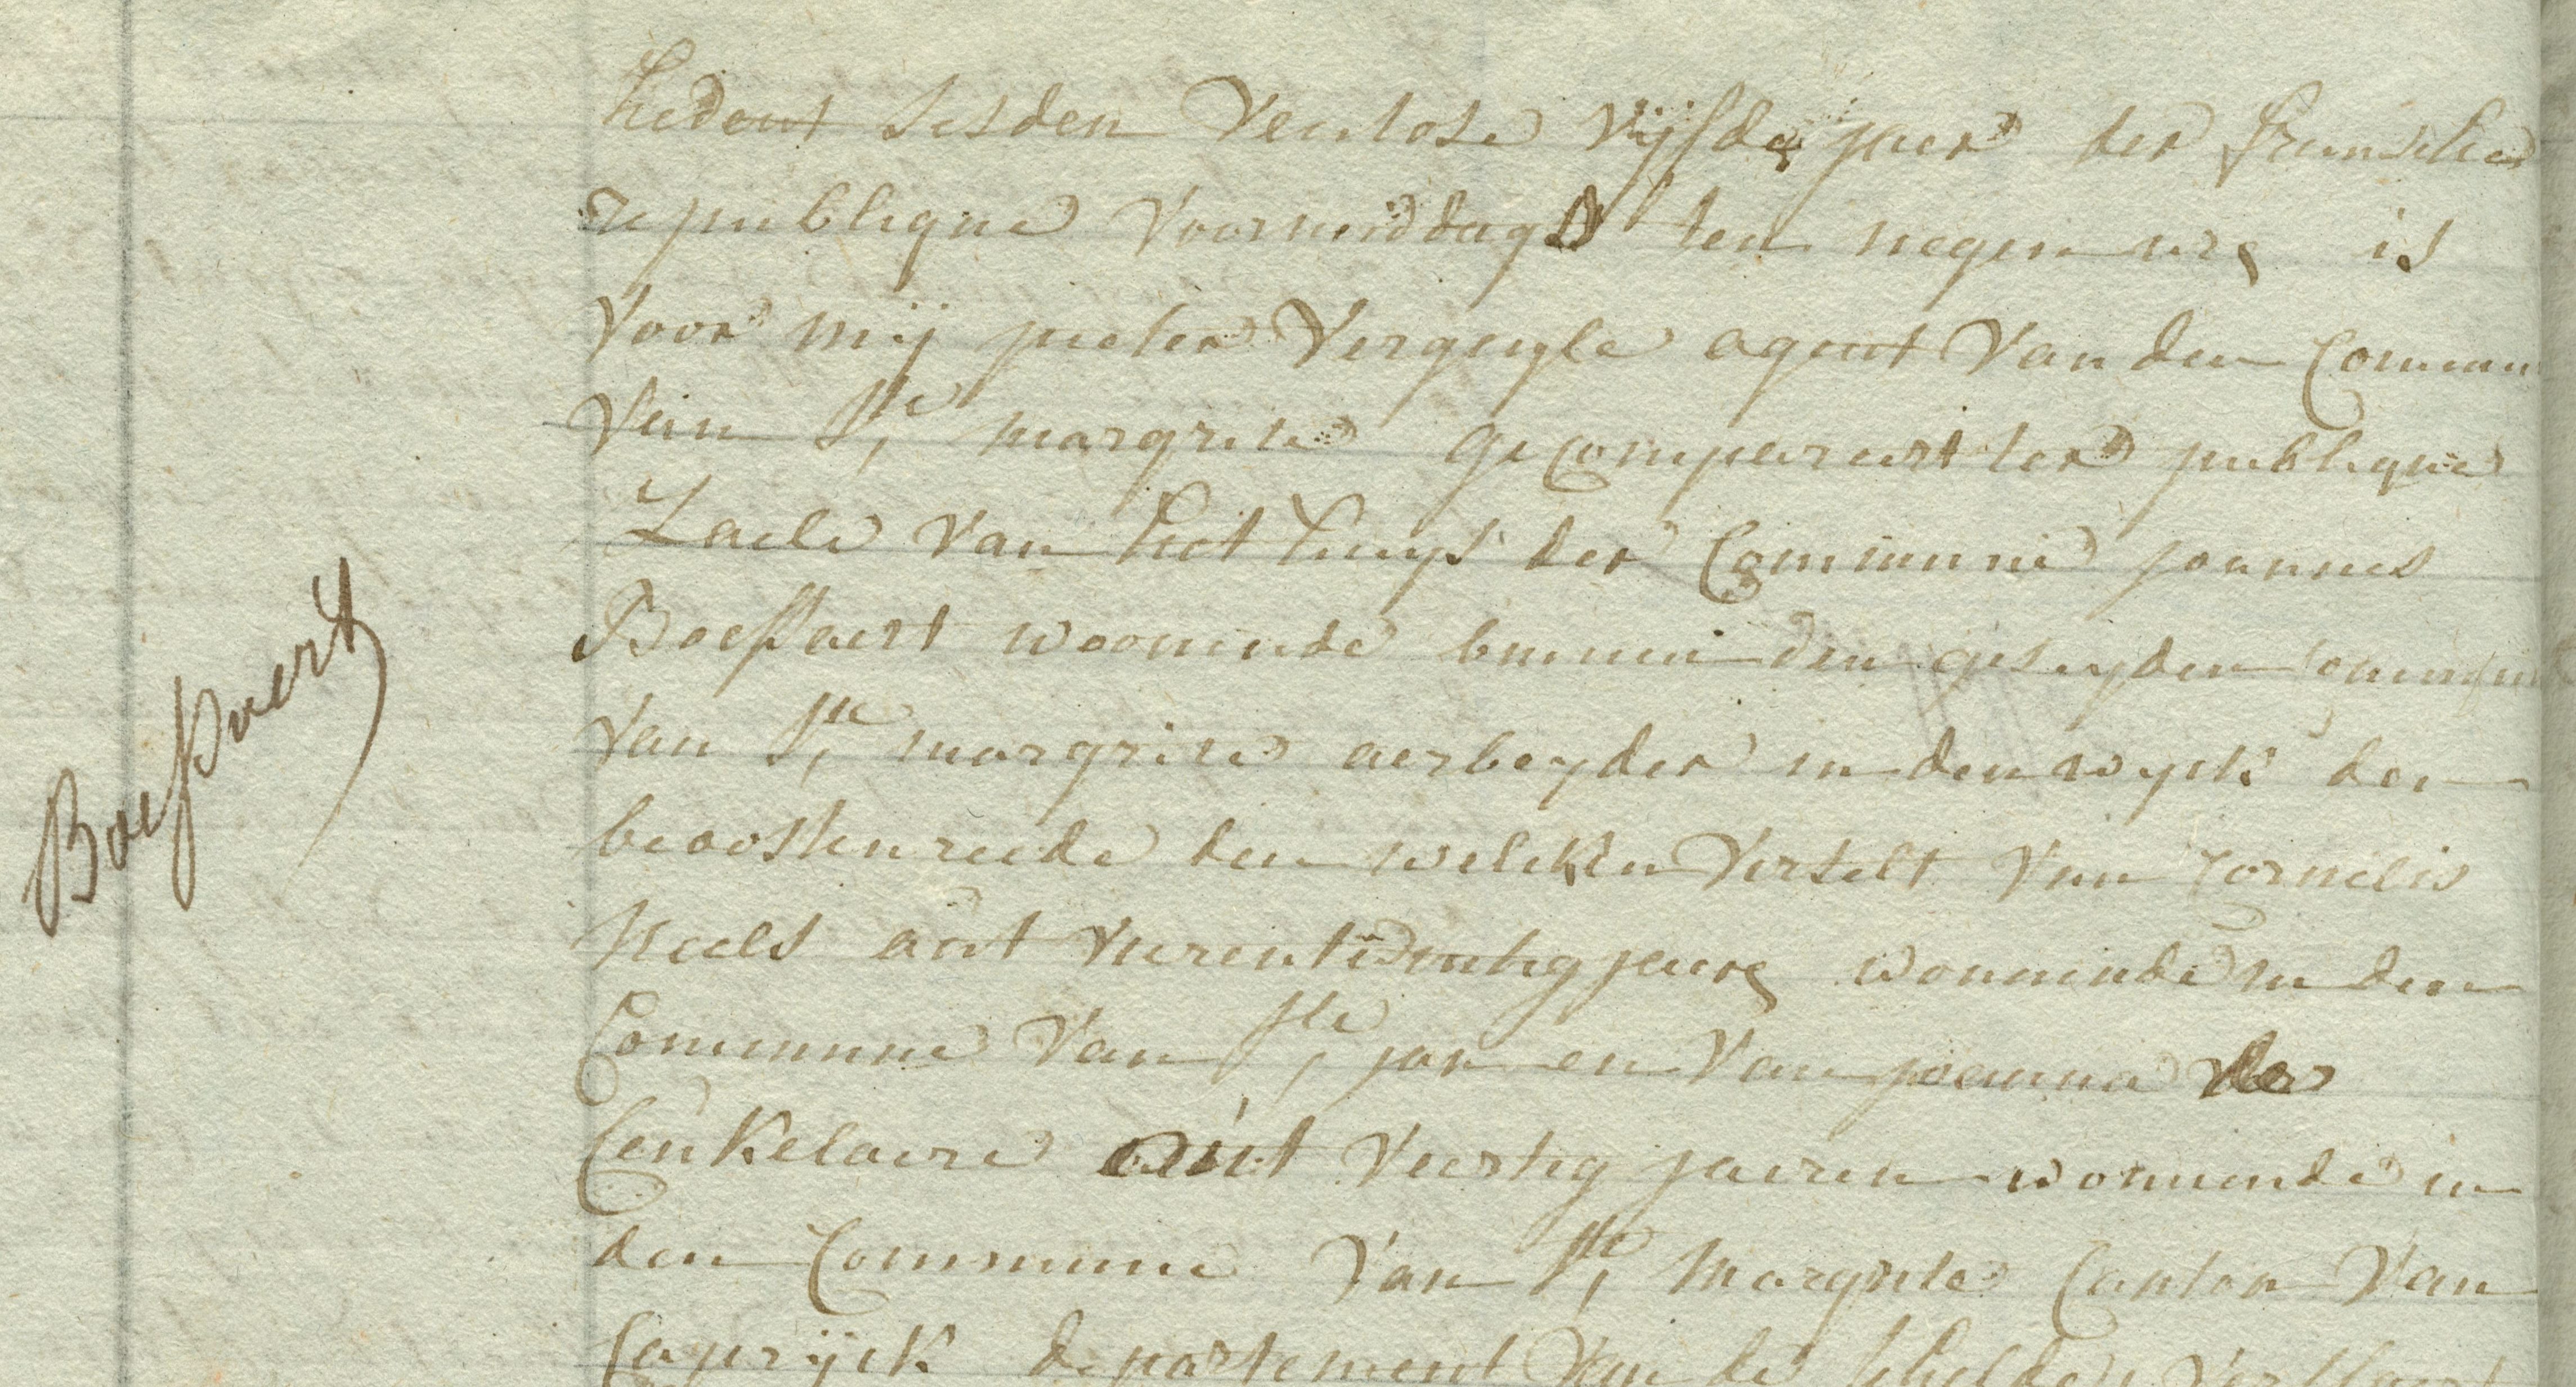 hedent sesden Ventose vijfde jaer der fransche
republique voormiddags ten negen ure is
voor mij pieter Vergeyle agent van den Commun
van Ste margriete gecompareert ter publique
Zaele van het huys der Commune joannes
Boeffaert
Boeffaert woonende binnen den geseyden commun
van Ste margriete aerbeyder in den wyck den
beoostenreede den welcken verselt van Cornelis
Neels out vierentwintig jaere wonende in den
Commune van Ste jan en van joanna de
Ceukelaire out veertig jaeren wonende in
den Commune van Ste Margriete Canton van
Caprijck departement van de schelde verclaert